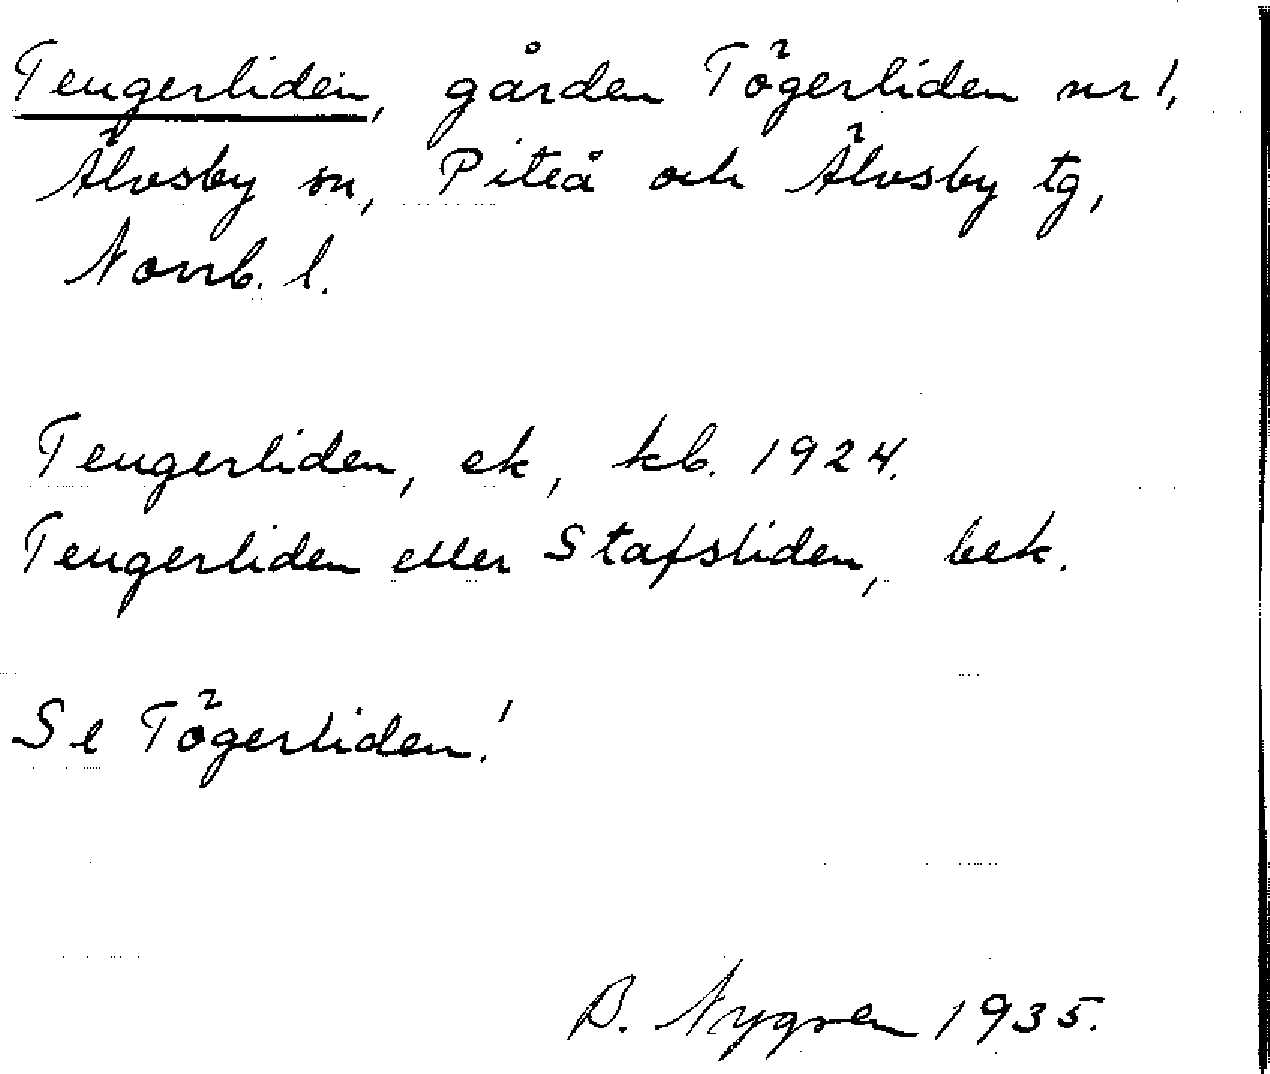 Teugerliden, gården Tögerliden nr 1,
Älvsby sn, Piteå och Älvsby tg,
Norrb. l.
Teugerliden, ek, kb. 1924.
Teugerliden eller Stafsliden, bek.
Se Tögerliden!
B. Nygren 1935.